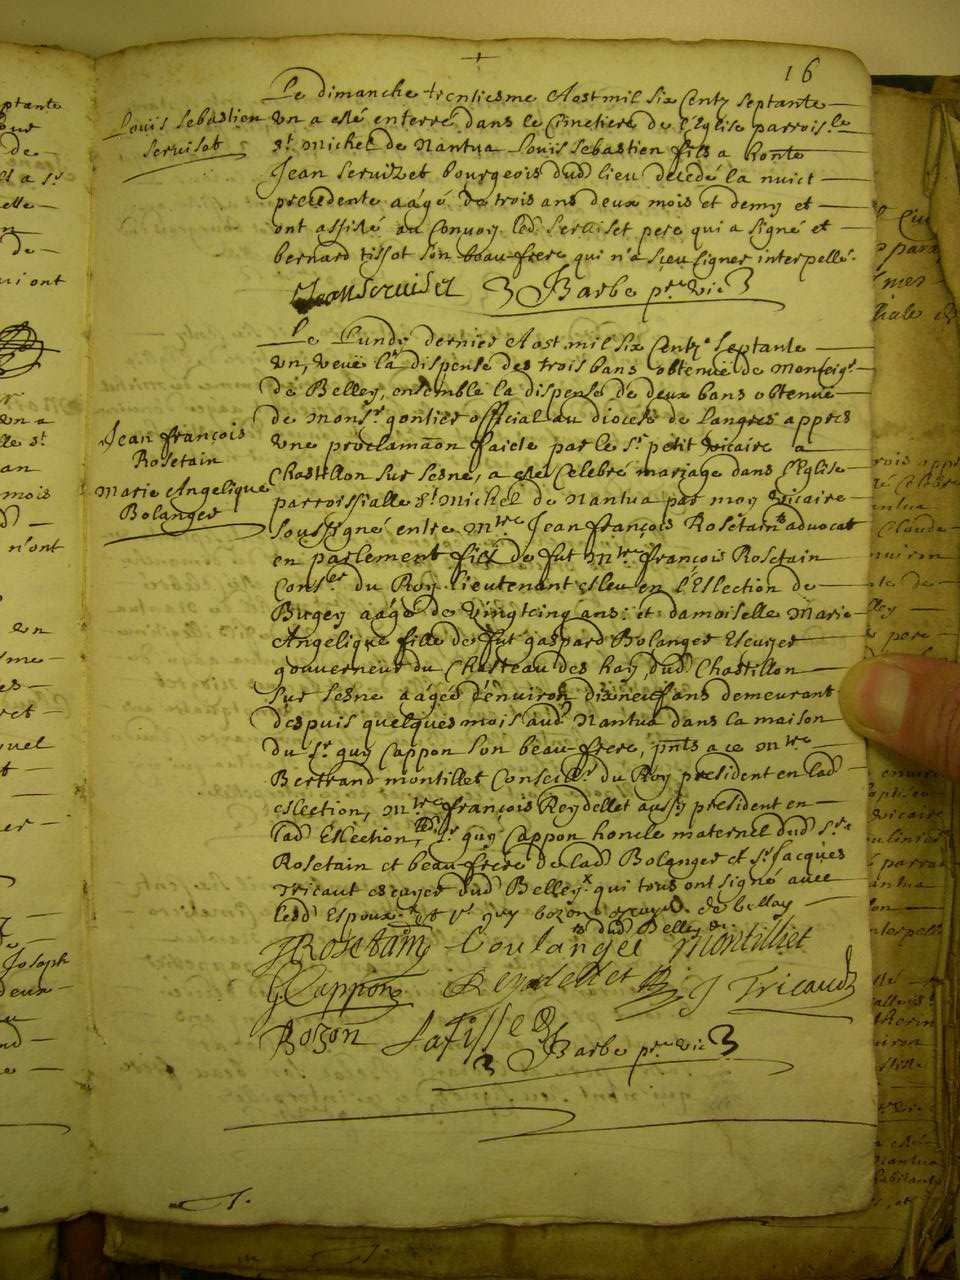 16
Louis Sebastien
Servisot
Le dimanche trentiesme Aost mil six Centz septante
Un a esté enterré dans le Cimetiere de l'Eglise parrois.le
st Michel de Nantua Louis Sebastien fils a honte
Jean Servizet bourgeois dud lieu decedé la nuict
precedente aágé de trois ans deux mois et demy et
ont assisté au Convoy led Serviset pere qui a signé et
bernard tissot son beau-frere qui n'a sçeu signer interpellé.
Jean Serviset Barbe pre vic
Jean françois
Rosetain
Marie Angelique
Bolanger
Le Lundy dernier Aost mil six Centz septante
Un, veüe la dispense des trois bans obtenue de Monseigr
de Belley, ensemble la dispense de deux bans obtenue
de Monsr gontier official au diocese de Langres appres
Une proclamaõn faicte par le sr petit vicaire a
Chastillon sur sesne, a esté Celebré mariage dans l'Eglise
parroissialle st Michel de Nantua par moy vicaire
soussigné entre Mtre Jean françois Rosetain advocat
en parlement filz de fut Mtre françois Rosetain
Conser du Roy lieutenant esleu en l'Eslection de
Bugey aágé de vingtcinq ans: et damoiselle Marie
Angelique fille de fut gaspard Bolanger Escuyer
gouverneur du Chasteau des hay, dud Chastillon
sur sesne aágée d'environ dixneuf ans demeurant
despuis quelques mois aud Nantua dans la maison
du sr guy Cappon son beau-frere, pnts a ce Mtre
Bertrand montillet Conseillr du Roy president en lad
eslection, Mtre françois Reydellet aussy president en
lad Eslection, sr guy Cappon honcle maternel dud sr
Rosetain et beau-frere de lad Bolanger et sr Jacques
Tricaut escuyer dud Belley x qui tous ont signé avec
lesd Espoux x et sr guy bozon escuyer de belley
dud Belley
JRosetain Boulanger Montilliet
G Cappon Reydellet J Tricaud
Bozon Lafisse
Barbe pre vic